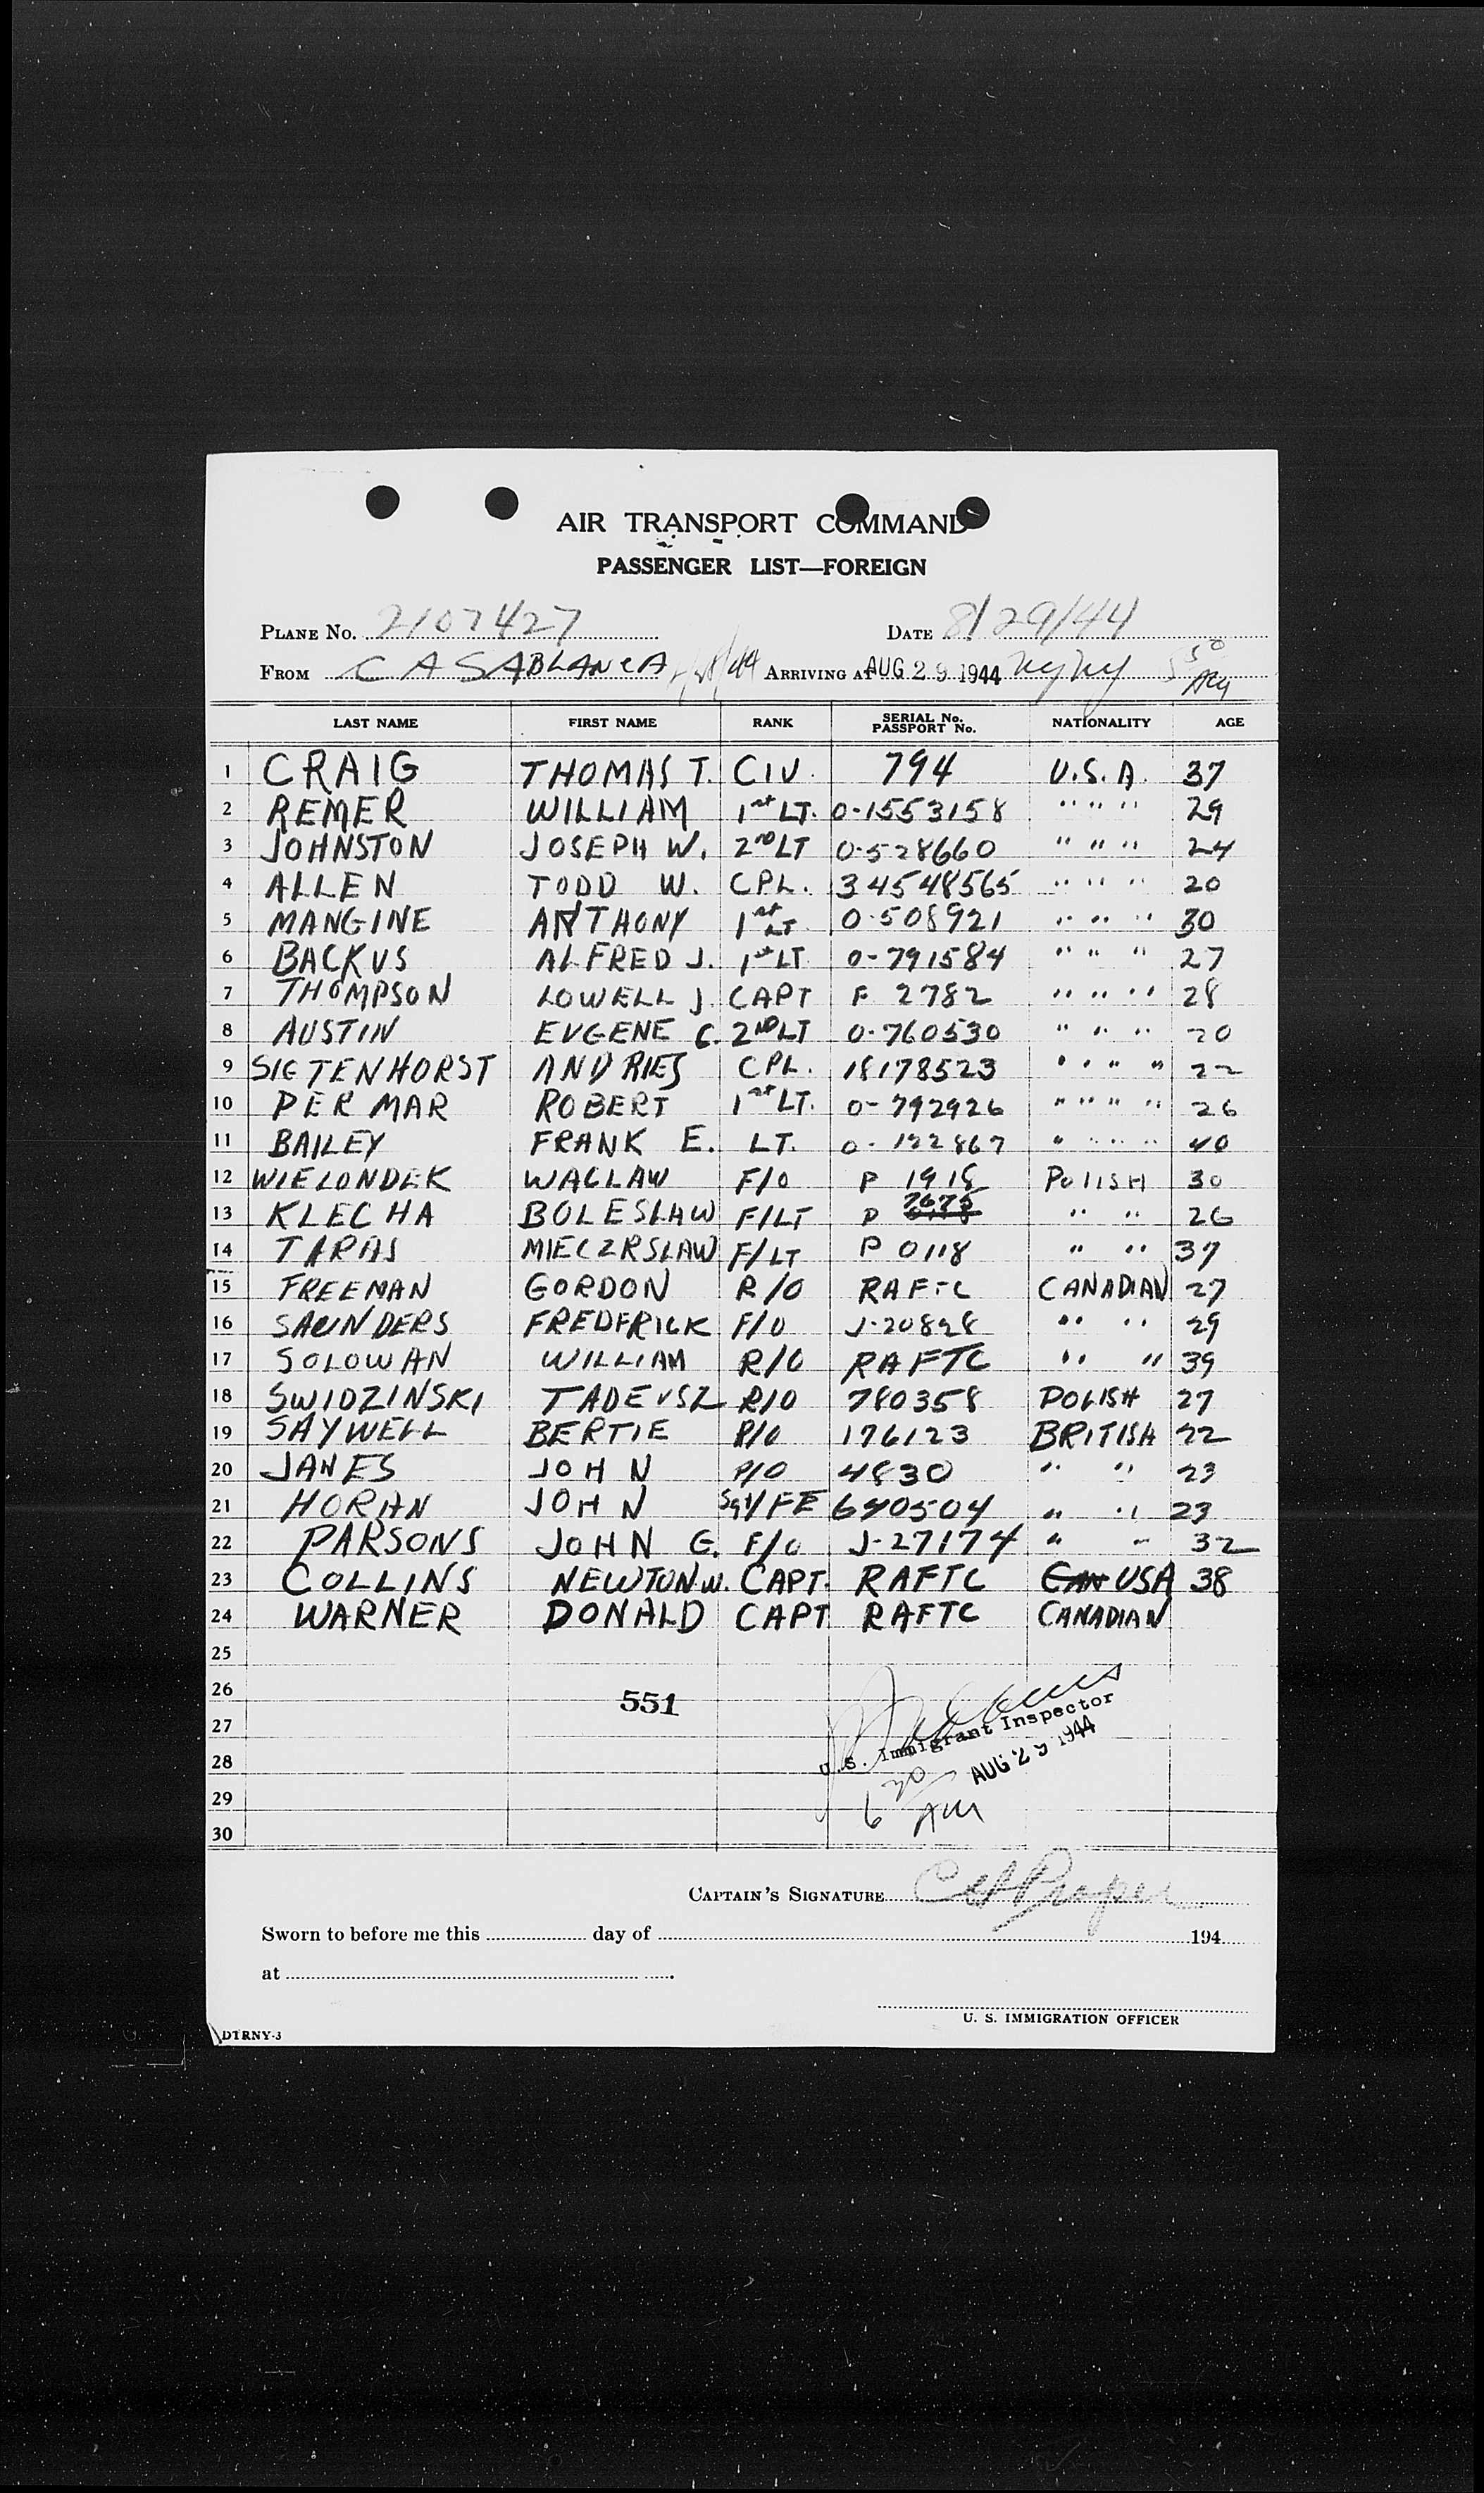 AIR TRANSPORT COMMAND
PASSENGER LIST—FOREIGN
PLANE NO. 2107427 DATE 8/29/44
FROM CASABLANCA ARRIVING AT AUG 29 1944 NY NY 5 50
LAST NAME FIRST NAME RANK SERIAL No. PASSPORT No. NATIONALITY AGE
1 CRAIG THOMAS T. CIV. 794 U.S.A. 37
2 REMER WILLIAM 1st LT. 0-1553158 " " " 29
3 JOHNSTON JOSEPH W. 2ND LT 0-528660 " " " 24
4 ALLEN TODD W. CPL. 34548565 " " " 20
5 MANGINE ANTHONY 1st LT 0-508921 " " " 30
6 BACKUS ALFRED J. 1st LT 0-791584 " " " 27
7 THOMPSON LOWELL J. CAPT F 2782 " " " 28
8 AUSTIN EUGENE C. 2ND LT 0-760530 " " " 20
9 SIETENHORST ANDRIES CPL. 18178523 " " " 22
10 PERMAR ROBERT 1st LT. 0-792926 " " " 26
11 BAILEY FRANK E. LT. 0-122867 " " " 40
12 WIELONDEK WACLAW F/O P 1918 POLISH 30
13 KLECHA BOLESLAW F/LT P 7675 " " 26
14 TARAS MIECZRSLAW F/LT P 0118 " " 37
15 FREEMAN GORDON R/O RAFTC CANADIAN 27
16 SAUNDERS FREDERICK F/O J-20828 " " 29
17 SOLOWAN WILLIAM R/O RAFTC " " 39
18 SWIDZINSKI TADEUSZ R/O 780358 POLISH 27
19 SAYWELL BERTIE P/O 176123 BRITISH 22
20 JANES JOHN P/O 4830 " " 23
21 HORAN JOHN Sgt/FE 640504 " " 23
22 PARSONS JOHN G. F/O J-27174 " " 32
23 COLLINS NEWTON W. CAPT. RAFTC CAN USA 38
24 WARNER DONALD CAPT RAFTC CANADIAN
25
26
551
27
U.S. Immigrant Inspector
28
AUG 29 1944
29
6 30 AM
30
CAPTAIN'S SIGNATURE
Sworn to before me this day of 194
at
U. S. IMMIGRATION OFFICER
DTRNY-3